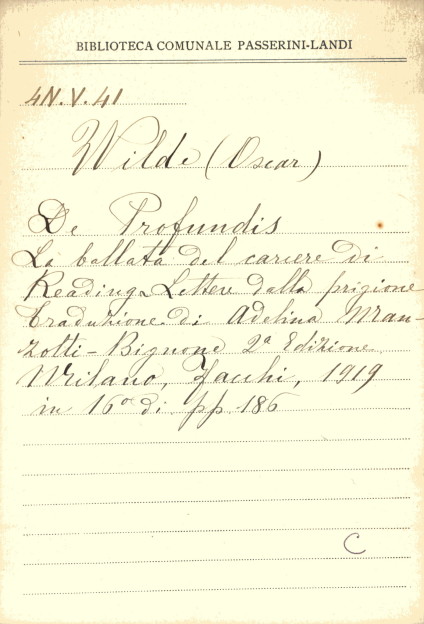 BIBLIOTECA COMUNALE PASSERINI-LANDI
4N.V.41
Wilde (Oscar)
De Profundis
La ballata del carcere di
Reading - Lettere dalla prigione
traduzione di Adelina Man-
zotti-Bignone 2ª Edizione
Milano, Facchi, 1919
in 16º di pp. 186
C